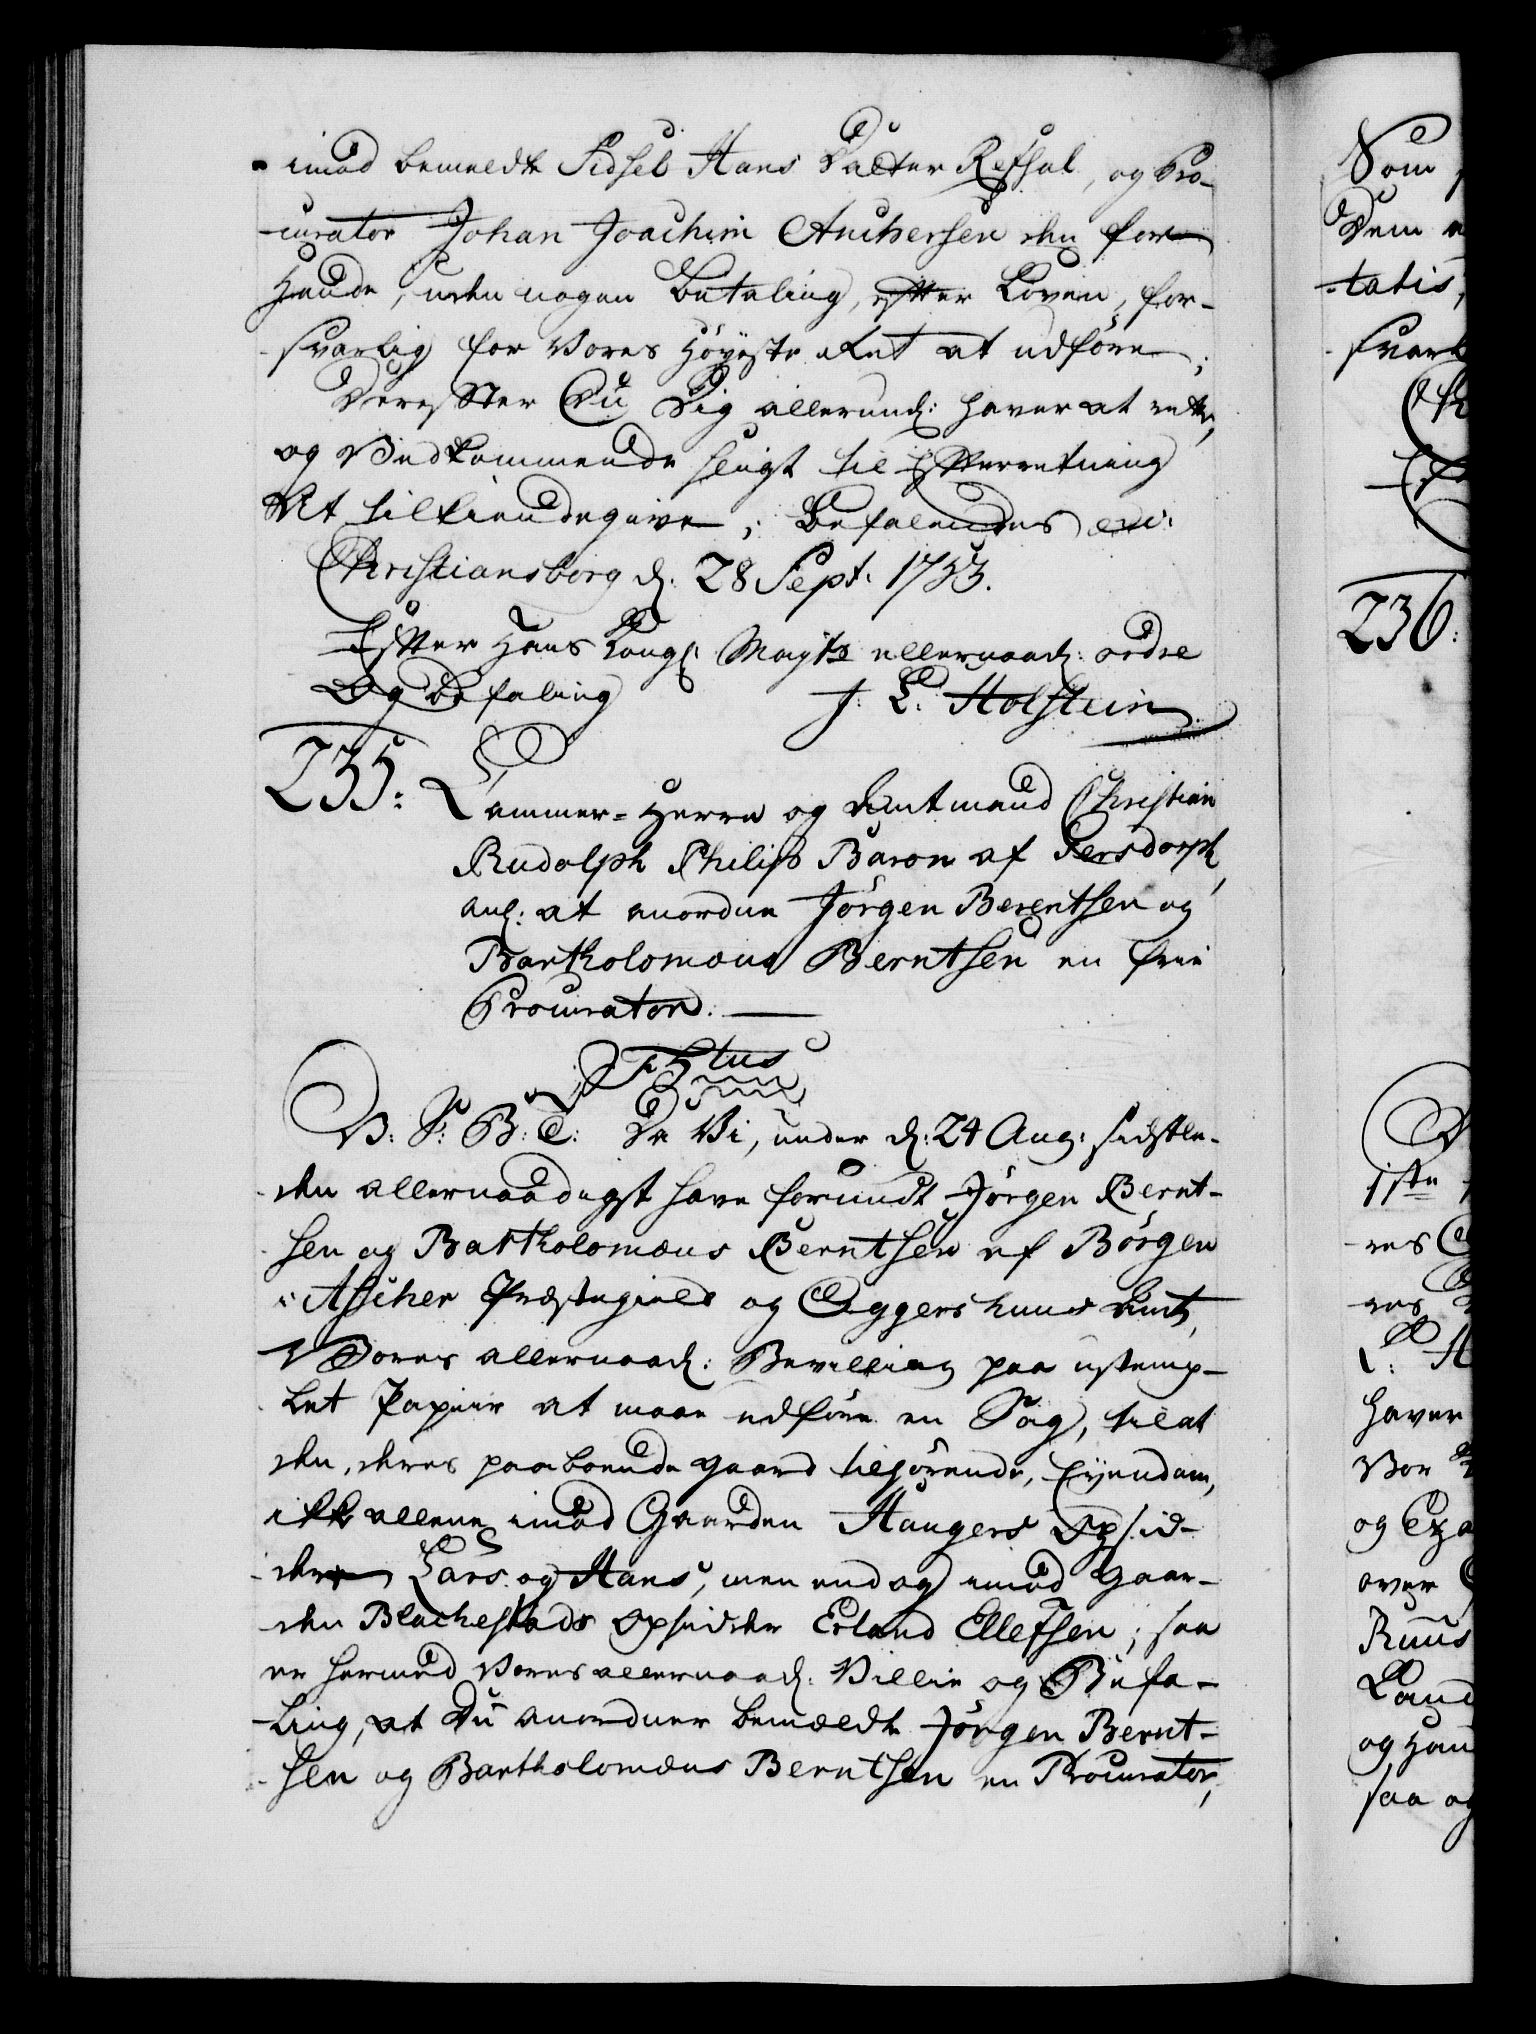 imod bemeldte Sidsel Hans Datter Refsal, og Pro-
-curator Johan Joachim Anchersen den for
Hende, uden nogen Betaling, efter Loven, for-
-svarlig for Vores Höyeste Ret at udföre;
Derefter Du Dig allerund: haver at rette,
og Vedkommende sligt til Efterretning
At tilkiendegive; Befalendes etc:
Christiansborg d: 28 Sept: 1753.
Efter Hans Kongl: Mayts allernaad: ordre
Og Befaling J. L. Holstein
235: Cammer-Herre og Amtmand Christian
Rudolph Philip Baron af Gersdorph,
anl: at anordne Jörgen Berentsen og
Bartholomæus Berntsen en frie
Procurator.
V: S: B: T: Da Vi, under d: 24 Aug: sidstle-
-den allernaadigst have forundt Jörgen Bernt-
-sen og Bartholomæus Berntsen af Börgen
i Ascher Præstegield og Aggershuus Amt,
Vores allernaad: Bevilling paa ustemp-
-let Papiir at maae udföre en Sag, til at
den, deres paaboende Gaard tilhörende, Eyendom,
ikke allene imod Gaarden Haugers Opsid-
-dere Lars og Hans, men endog imod Gaar-
-den Blachestads Opsidder Erland Ellefsen; saa
er hermed Vores allernaad: Villie og Befa-
-ling, at Du anordner bemældte Jörgen Bernt-
-sen og Bartholomæus Berntsen en Procurator,
Som
Dem
-tatis,
236:
1ste
haver
Vor
og
over
Ruus
Land
og
saa og